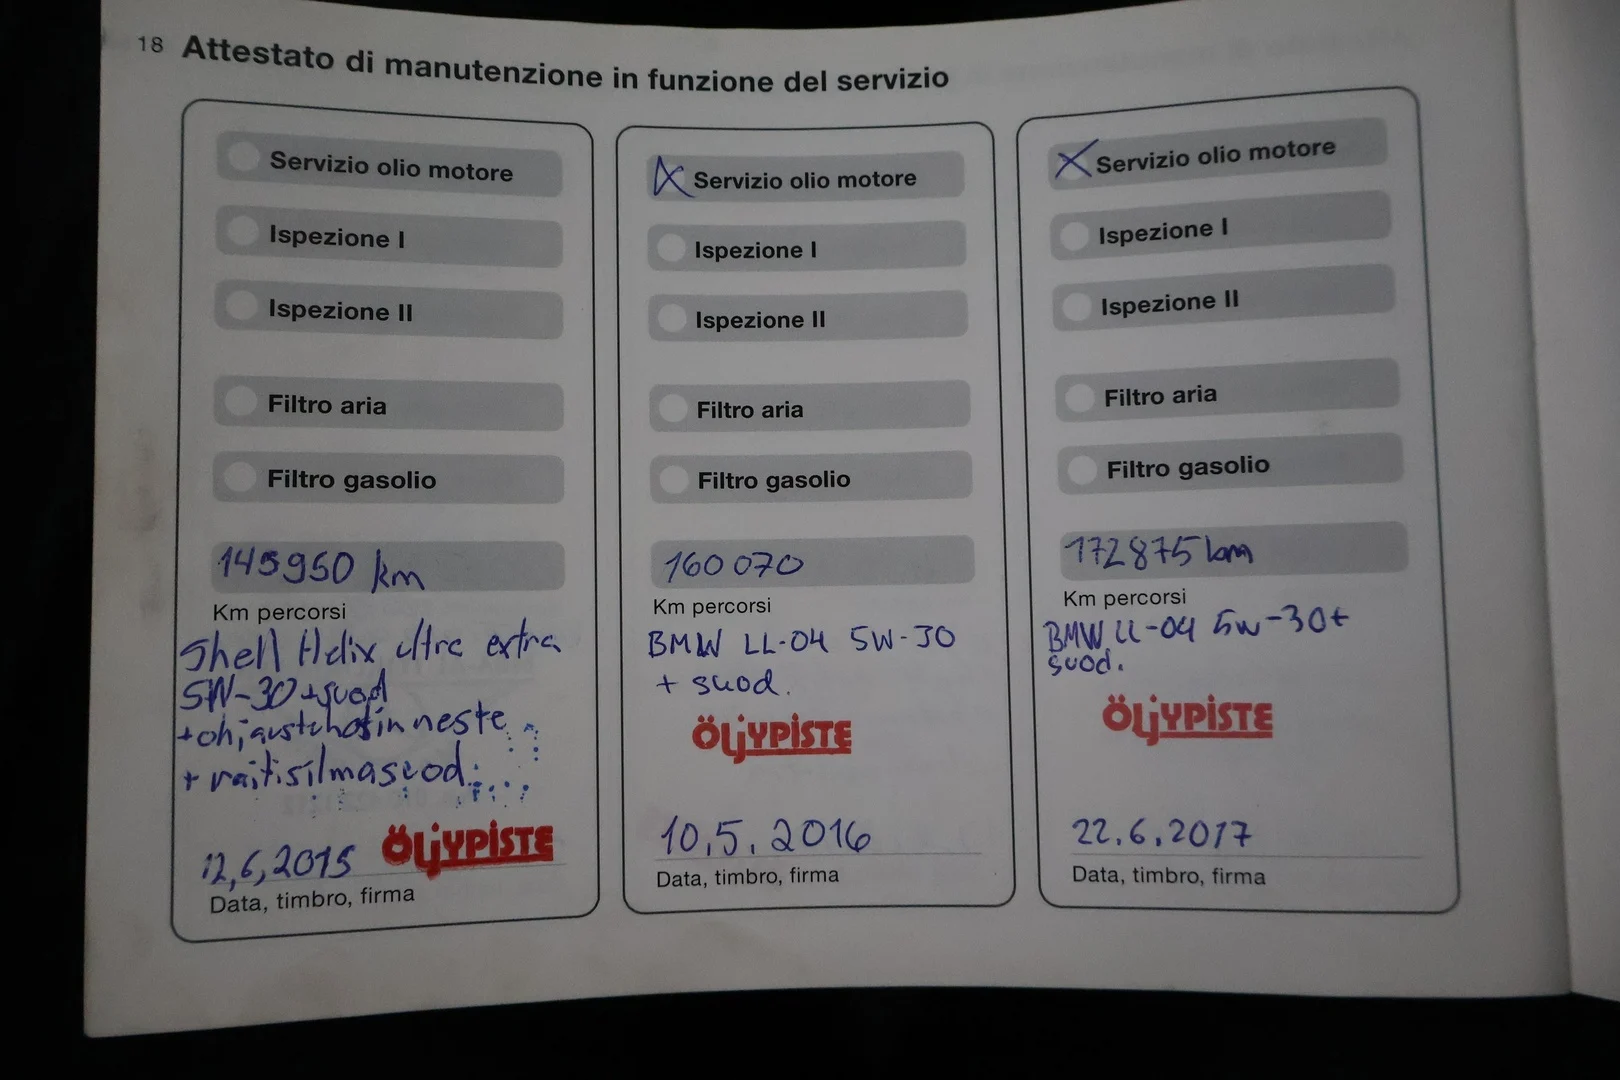 18 Attestato di manutenzione in funzione del servizio
Servizio olio motore
Ispezione I
Ispezione II
Filtro aria
Filtro gasolio
145950 km
Km percorsi
Shell Helix ultra extra
5W-30 + suod
+ ohjaustehostinneste
+ raitisilmasuod.
12,6,2015 ÖLJYPISTE
Data, timbro, firma
Servizio olio motore
Ispezione I
Ispezione II
Filtro aria
Filtro gasolio
160 070
Km percorsi
BMW LL-04 5W-30
+ suod.
ÖLJYPISTE
10.5.2016
Data, timbro, firma
Servizio olio motore
Ispezione I
Ispezione II
Filtro aria
Filtro gasolio
172875 km
Km percorsi
BMW LL-04 5W-30+
suod.
ÖLJYPISTE
22.6.2017
Data, timbro, firma